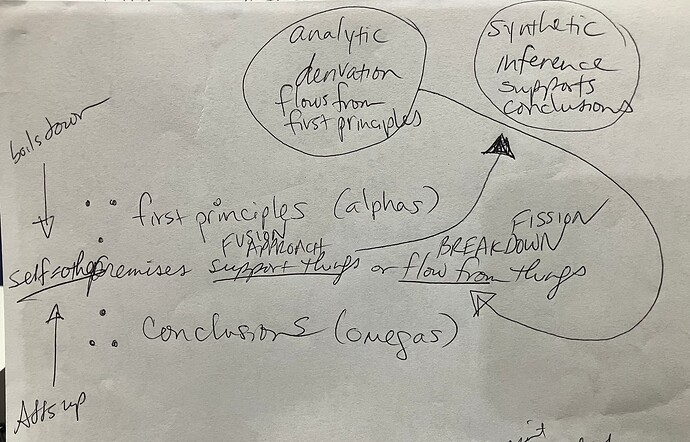 analytic
derivation
flows from
first principles
synthetic
inference
supports
conclusions
boils down
∵ first principles (alphas)
FUSION
APPROACH
FISSION
BREAKDOWN
self=other premises support things or flow from things
∴ conclusions (omegas)
Adds up